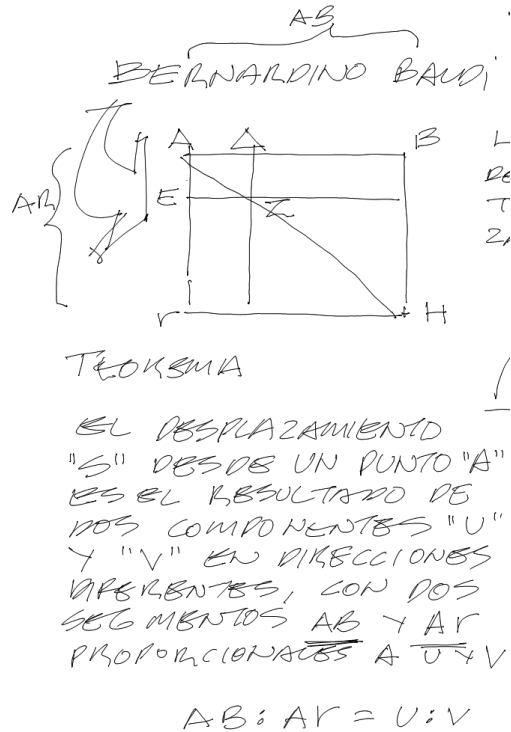 AB
BERNARDINO BALDI
A Δ B
AR
E Z
r H
TEOREMA
EL DESPLAZAMIENTO
"S" DESDE UN PUNTO "A"
ES EL RESULTADO DE
DOS COMPONENTES "U"
Y "V" EN DIRECCIONES
DIFERENTES, CON DOS
SEGMENTOS AB Y Ar
PROPORCIONALES A U Y V
AB : Ar = U : V